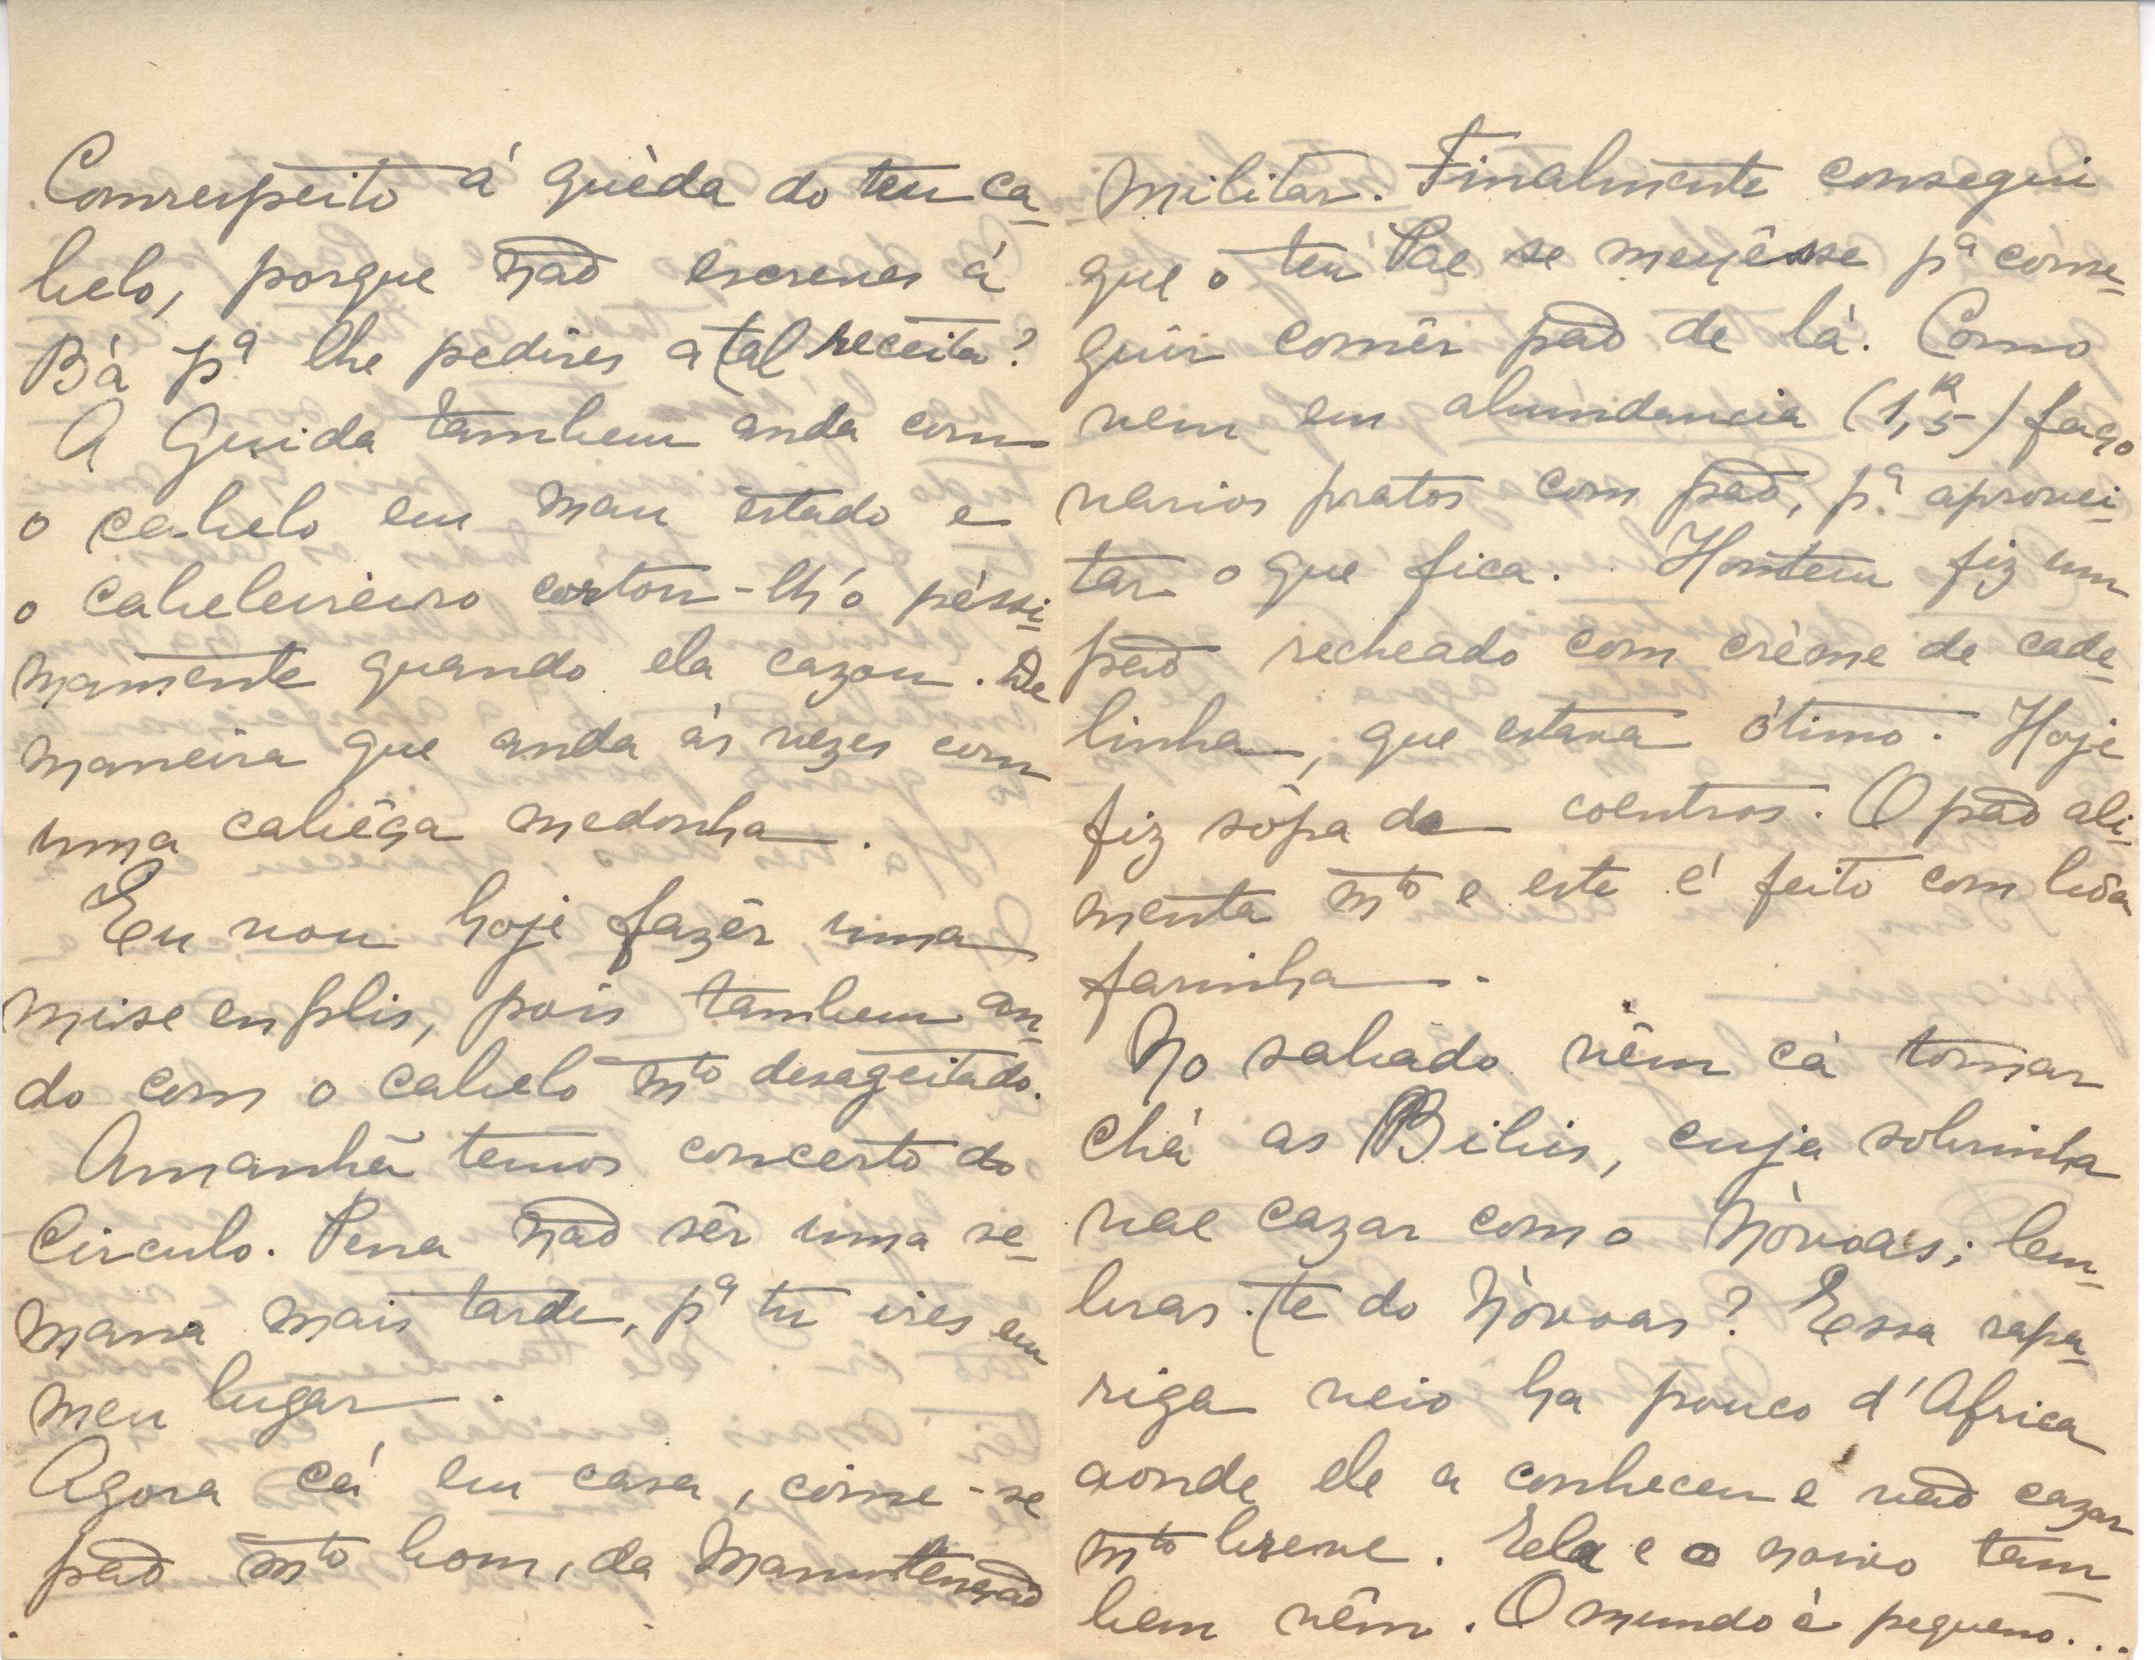 Comrespeito á quèda do teu ca-
belo, porque não escreves á
Bá pª lhe pedires a tal receita?
A Guida tambem anda com
o cabelo em mau estado e
o cabeleireiro cortou-lh'o péssi-
mamente quando ela cazou. De
maneira que anda ás vezes com
uma cabêça medonha.
Eu vou hoje fazêr uma
mise en plis, pois tambem an-
do com o cabelo mto desageitado.
Amanhã temos concerto do
Circulo. Pena não sêr uma se-
mana mais tarde, pª tu ires em
meu lugar.
Agora cá em casa, cóme-se
pão mto bom, da Manutenção
Militar. Finalmente consegui
que o teu Pae se mexêsse pª conse-
guir comêr pão de lá. Como
vem em abundancia (1,5 k) faço
varios pratos com pão, pª aprovei-
tar o que fica. Hontem fiz um
pão recheado com crème de cade-
linha, que estava ótimo. Hoje
fiz sôpa de coentros. O pão ali-
menta mto e este é feito com bôa
farinha.
No sabado vêm cá tomar
chá as Bibis, cuja sobrinha
vae cazar com o Nòvoas; lem-
bras-te do Nòvoas? Essa rapa-
riga veio ha pouco d'Africa
aonde ele a conheceu e vão cazar
mto breve. Ela e o noivo tam-
bem vêm. O mundo è pequeno...